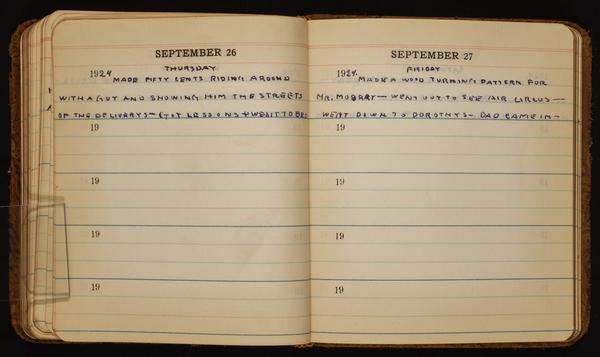 SEPTEMBER 26
THURSDAY
1924
MADE FIFTY CENTS RIDING AROUND
WITH A GUY AND SHOWING HIM THE STREETS
OF THE DELIVERYS - GOT LESSONS + WENT TO BED
19
19
19
19
SEPTEMBER 27
FRIDAY
1924.
MADE A WOOD TURNING PATTERN FOR
MR. MOBRAY - WENT OUT TO SEE AIR CIRCUS -
WENT DOWN TO DOROTHYS - DAD CAME IN -
19
19
19
19